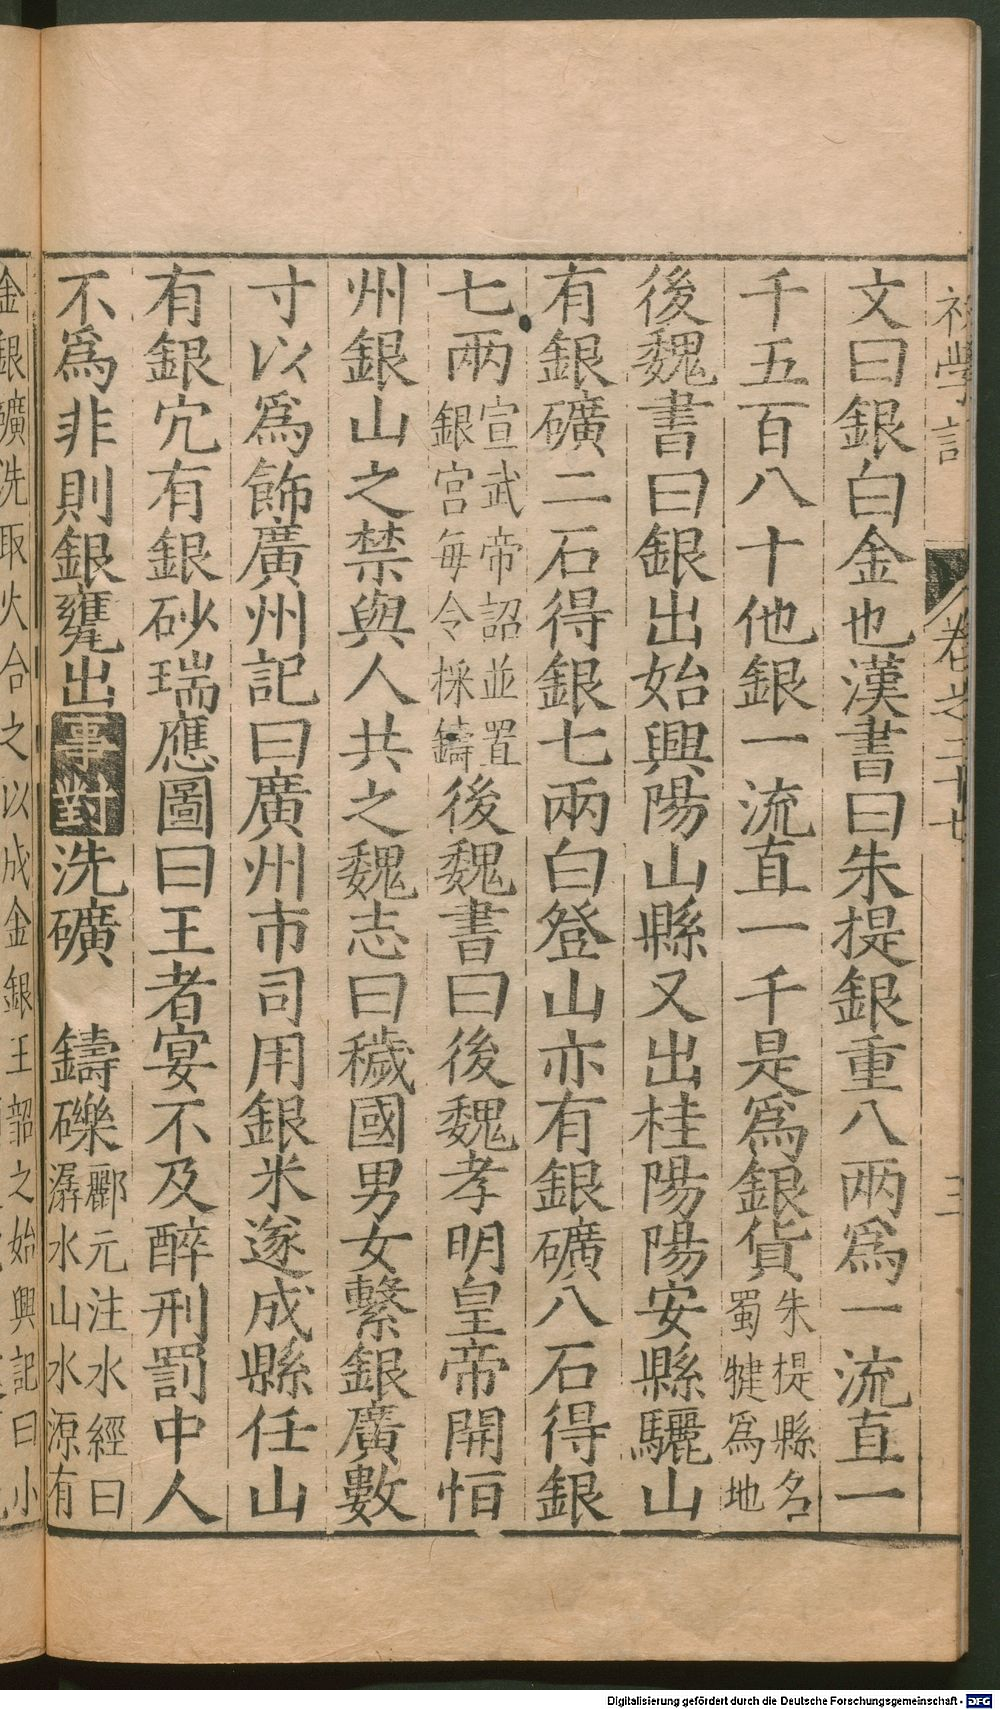 初學記 卷之二十七 三
文曰銀白金也漢書曰朱提銀重八兩爲一流直一
千五百八十他銀一流直一千是爲銀貨朱提縣名蜀犍爲地
後魏書曰銀出始興陽山縣又出桂陽陽安縣驪山
有銀礦二石得銀七兩白登山亦有銀礦八石得銀
七兩宣武帝詔並置銀宮每令採鑄後魏書曰後魏孝明皇帝開恒
州銀山之禁與人共之魏志曰穢國男女繫銀廣數
寸以爲飾廣州記曰廣州市司用銀米遂成縣任山
有銀穴有銀砂瑞應圖曰王者宴不及醉刑罰中人
不爲非則銀甕出事對洗礦 鑄礫酈元注水經曰潺水山水源有
金銀礦洗取火合之以成金銀王韶之始興記曰小
Digitalisierung gefördert durch die Deutsche Forschungsgemeinschaft - DFG